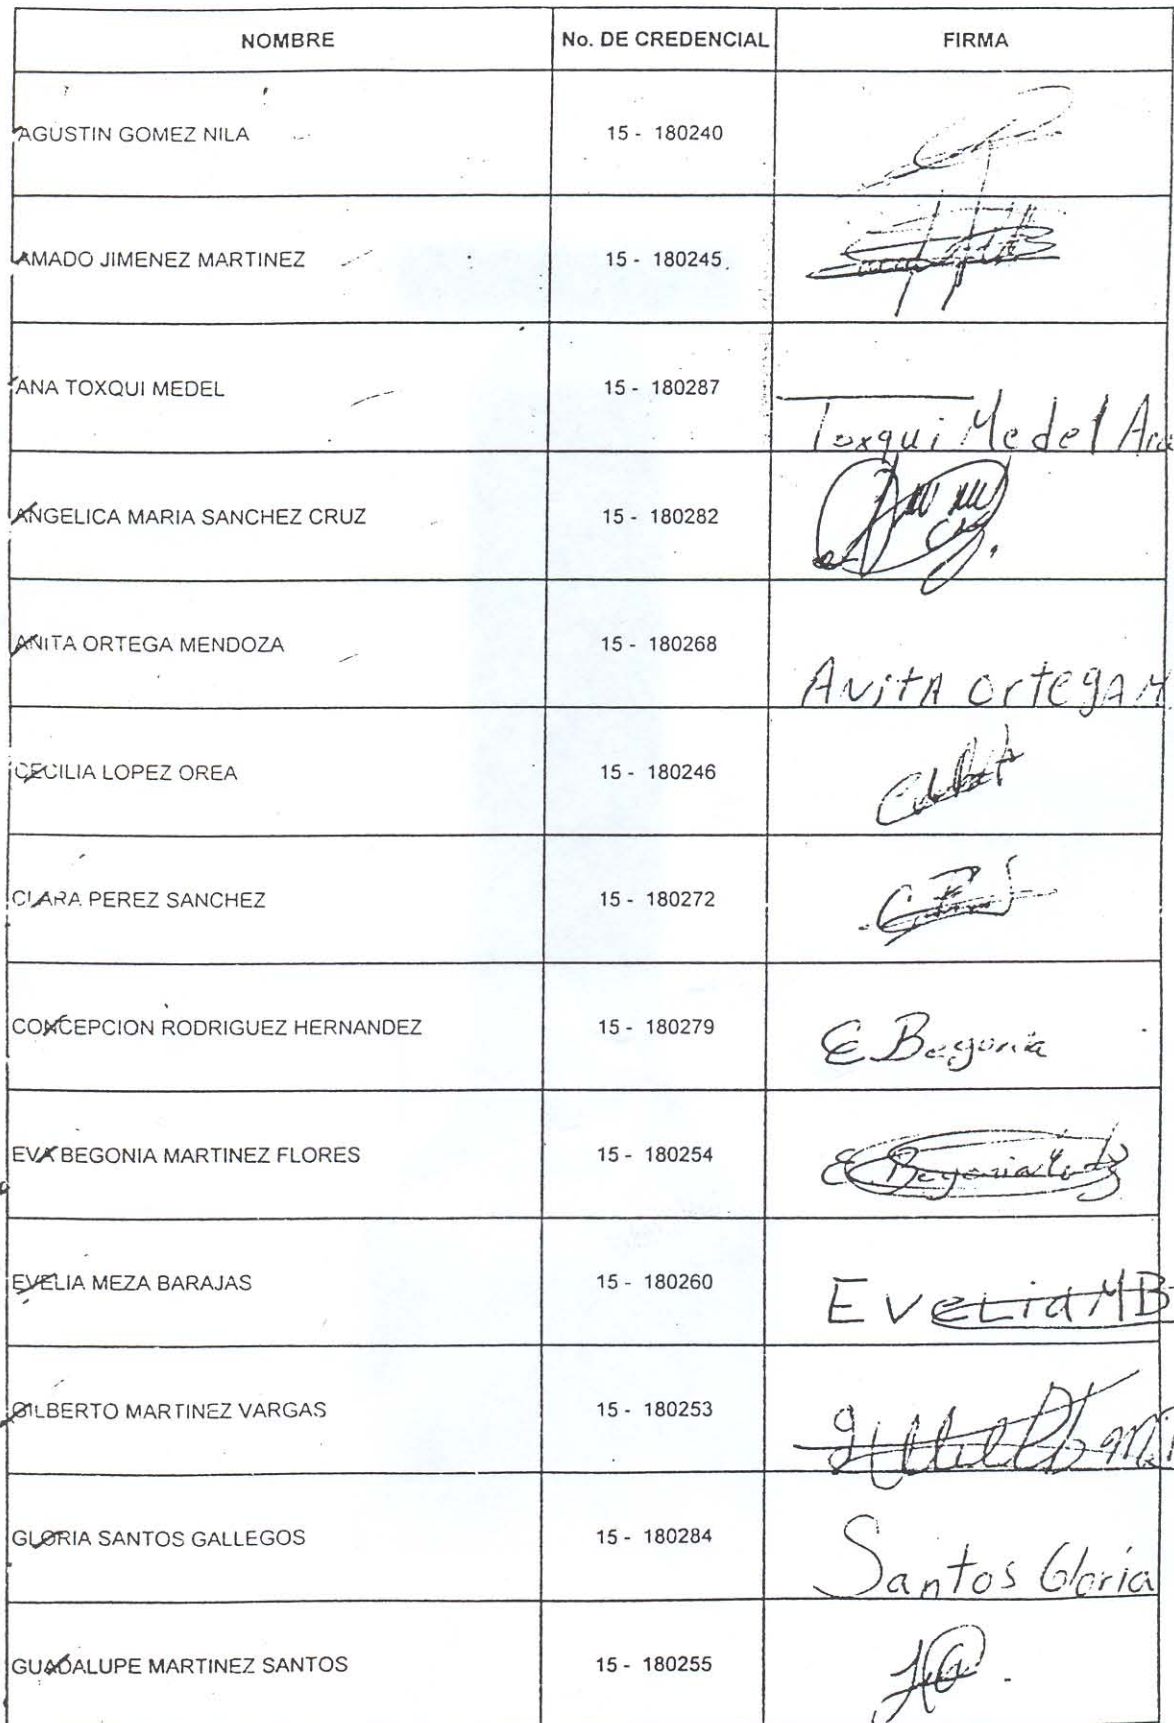 NOMBRE No. DE CREDENCIAL FIRMA
AGUSTIN GOMEZ NILA 15 - 180240
AMADO JIMENEZ MARTINEZ 15 - 180245
ANA TOXQUI MEDEL 15 - 180287 Toxqui Medel Ana
ANGELICA MARIA SANCHEZ CRUZ 15 - 180282
ANITA ORTEGA MENDOZA 15 - 180268 ANitA OrtegA M
CECILIA LOPEZ OREA 15 - 180246
CLARA PEREZ SANCHEZ 15 - 180272
CONCEPCION RODRIGUEZ HERNANDEZ 15 - 180279 E Begonia
EVA BEGONIA MARTINEZ FLORES 15 - 180254 E Begonia
EVELIA MEZA BARAJAS 15 - 180260 EveLia MB
GILBERTO MARTINEZ VARGAS 15 - 180253
GLORIA SANTOS GALLEGOS 15 - 180284 Santos Gloria
GUADALUPE MARTINEZ SANTOS 15 - 180255